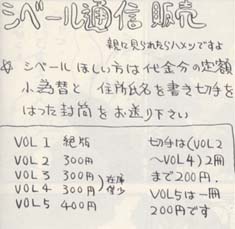 シベール通信販売
親に見られたらハメツですよ
シベールほしい方は代金分の定額
小為替と住所氏名を書き切手を
はった封筒をお送り下さい
VOL 1 絶版
VOL 2 300円
VOL 3 300円
VOL 4 300円
VOL 5 400円
在庫
僅少
切手は(VOL2
～VOL4)2冊
まで200円.
VOL5は一冊
200円です